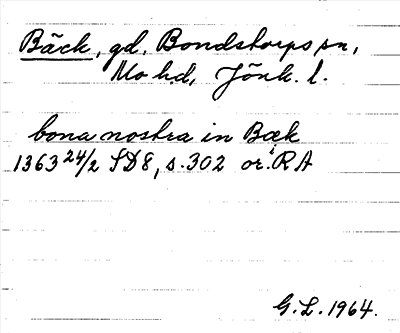 Bäck, gd, Bondstorps sn,
Mo hd, Jönk. l.
bona nostra in Bæk
1363 24/2 SD8, s. 302 or. RA
G.L. 1964.